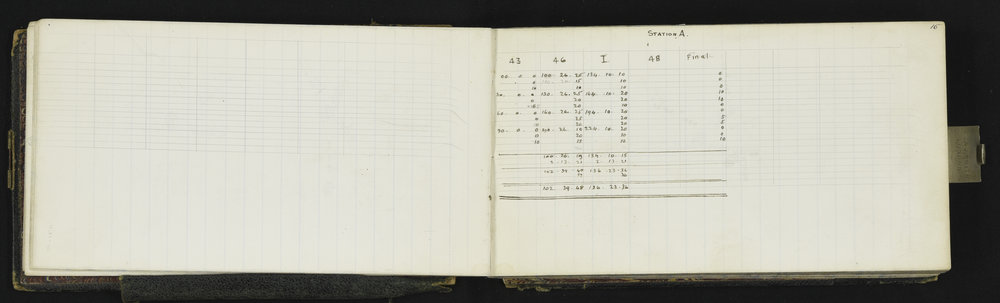 15
STATION A.
43 46 I 48 Final
00. 0 0 100. 26. 25 134. 10. 10 0
0 15 10 0
10 10 10 0
130. 26. 25 164. 10. 20 10
0 20 20 10
20 10 0
0 0 160. 26. 25 194. 10. 20 5
0 25 20 5
0 20 20 0
0. 0 26. 19 224. 10. 20 0
10 20 10 0
10 15 10 10
100. 26. 19 134. 10. 15
2. 13. 21 2. 13. 21
102. 39. 40 136. 23. 36
102 39. 48 136. 23. 36